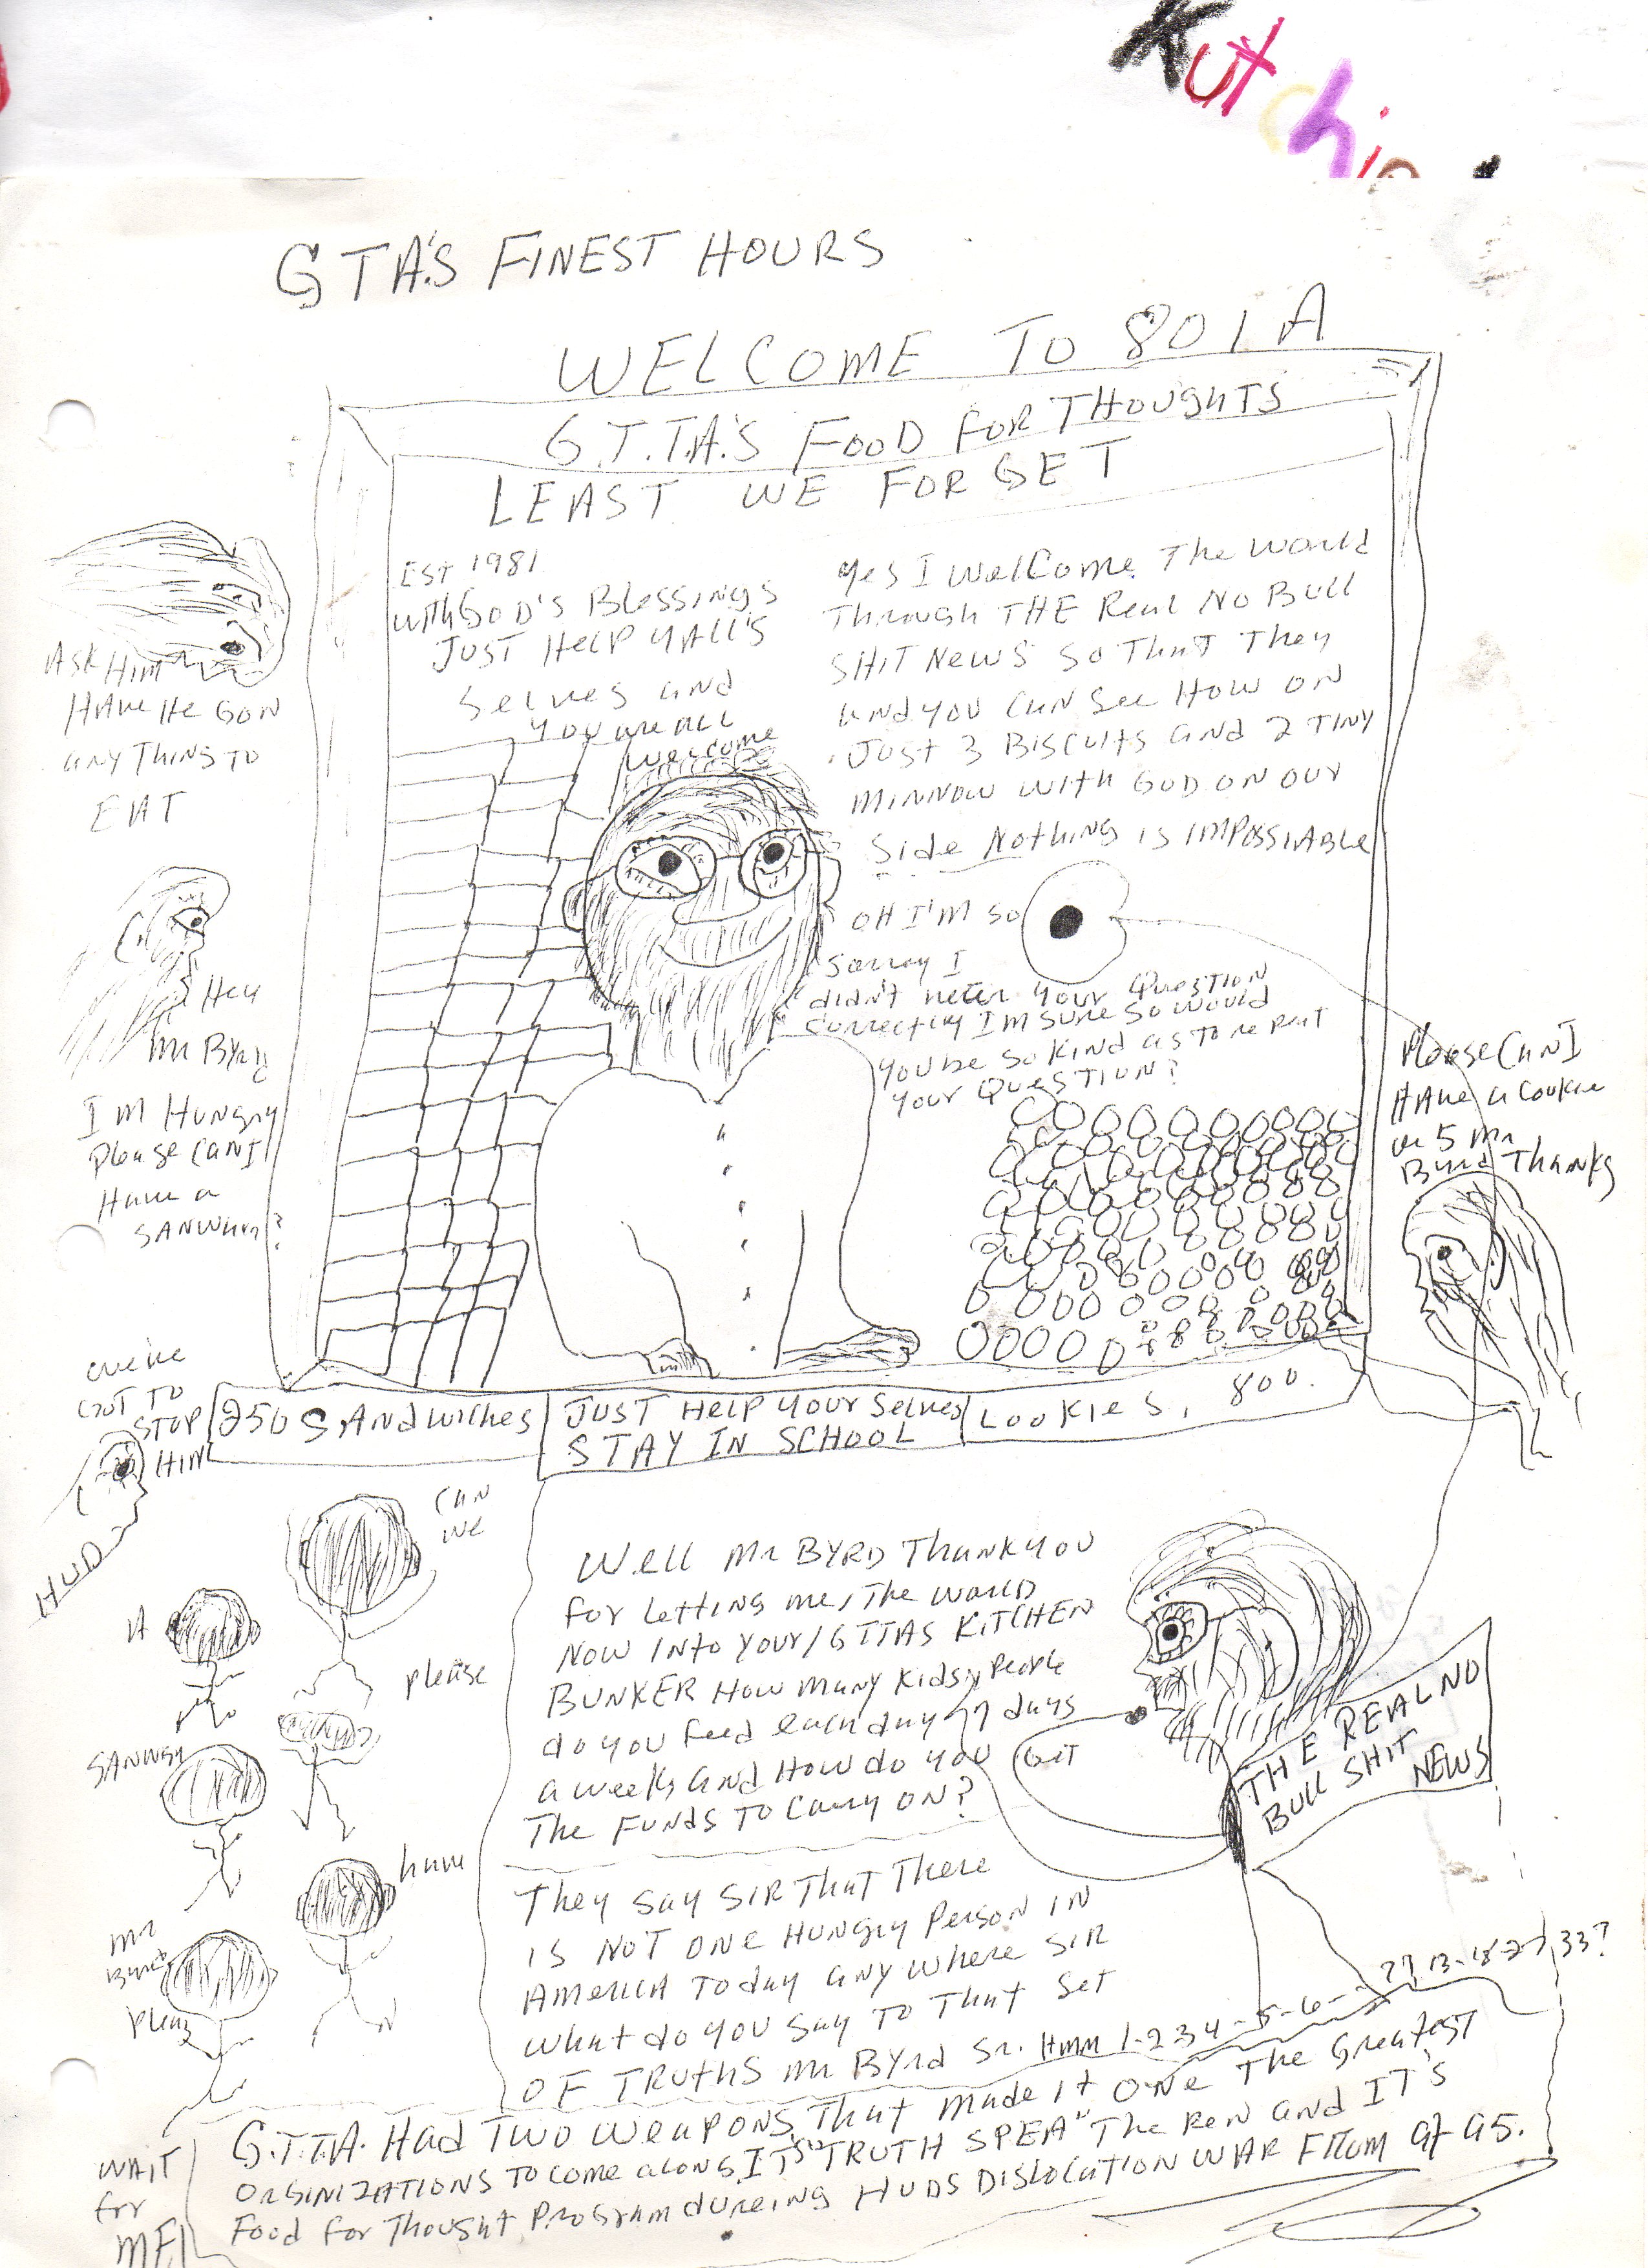 Kutchin
GTA'S FINEST HOURS
WELCOME TO 801A
G.T.T.A.'S FOOD FOR THOUGHTS
LEAST WE FORGET
EST 1981
with GOD'S BLESSINGS
JUST HELP YALL'S
Selves and
you are ALL
welcome
Yes I Welcome The World
Through THE Real NO BULL
SHIT NEWS SO THAT They
and you can see How on
JUST 3 BISCUITS and 2 TINY
MINNOW WITH GOD ON OUR
Side Nothing is IMPOSSIABLE
OH I'M SO
Sorray I
didn't heter your Question
correctly I'm sure so would
you be so KIND as TO repeat
your QUESTION?
ASK HIM
HAVE HE GON
ANY THING TO
EAT
Hey
Mr Byrd
I'M HUNGRY
Please CAN I
Have a
SANWHG?
Please CAN I
HAVE a Cookie
or 5 Mr
Byrd Thanks
We've
GOT TO
STOP
HIM
HUD
250 SANDWICHES
JUST HELP YOUR SELVES
STAY IN SCHOOL
COOKIES, 800.
CAN
WE
please
have
A
SANWGY
Mr
Byrd
Pleaz
WAIT
for
ME
Well Mr BYRD THANK YOU
For Letting me, The world
NOW INTO YOUR/GTTAS KITCHEN
BUNKER HOW many KIDS, People
do you Feed each day 7 days
a weeks and How do you GET
The FUNDS TO Carry ON?
THE REAL NO
BULL SHIT
NEWS
They Say SIR THAT There
IS NOT ONE HUNGRY PERSON IN
AMERICA Today any where SIR
What do you Say TO That Set
OF TRUTHS Mr BYRD Sr. Hmm 1-2 3 4-5-6-7 ?? 13-18-27 33?
G.T.T.A. Had TWO WEAPONS, That made it ONE The Greatest
ORGINIZATIONS TO COME along, IT'S "TRUTH SPEA" The PEN and IT'S
Food for Thought Program dureing HUDS DISLOCATION WAR FROM 91 95.